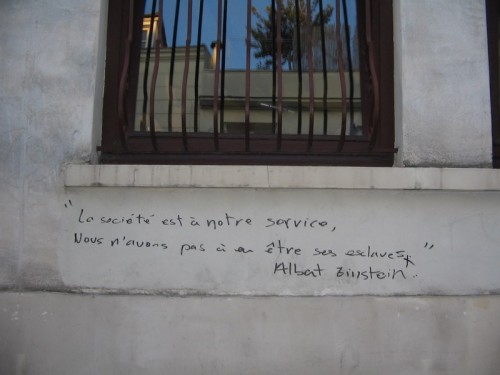 "La société est à notre service,
Nous n'avons pas à en être ses esclaves"
Albert Einstein..